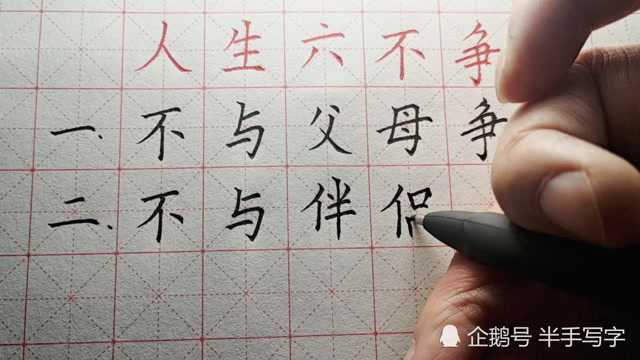 人生六不争
一.不与父母争
二、不与伴侣
企鹅号 半手写字